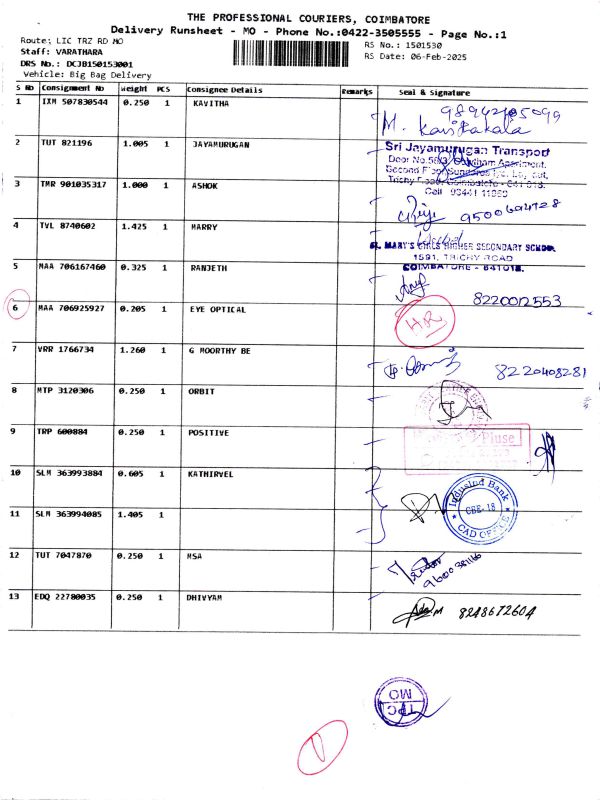 THE PROFESSIONAL COURIERS, COIMBATORE
Delivery Runsheet - MO - Phone No.:0422-3505555 - Page No.:1
Route: LIC TRZ RD MO
RS No.: 1501530
Staff: VARATHARA
RS Date: 06-Feb-2025
DRS No.: DCJB150153001
Vehicle: Big Bag Delivery
S No Consignment No Weight PCS Consignee Details Remarks Seal & Signature
1 IXM 507830544 0.250 1 KAVITHA
M. 
2 TUT 821196 1.005 1 JAYAMURUGAN
Sri Jayamurugan Transport
Door No.58/3, Apartment,
Second Floor
Trichy Road, Coimbatore - 641 018.
Cell
3 TMR 901035317 1.000 1 ASHOK
9500604728
4 TVL 8740602 1.425 1 MARRY
ST. MARY'S GIRLS HIGHER SECONDARY SCHOOL
1591, TRICHY ROAD
COIMBATORE - 641018.
5 MAA 706167460 0.325 1 RANJETH
8220012553
6 MAA 706925927 0.205 1 EYE OPTICAL
H.R
7 VRR 1766734 1.260 1 G MOORTHY BE
8220408281
8 MTP 3120306 0.250 1 ORBIT
9 TRP 600884 0.250 1 POSITIVE
Pluse
10 SLM 363993884 0.605 1 KATHIRVEL
IndusInd Bank
CBE-18
CAD OFFICE
11 SLM 363994085 1.405 1
12 TUT 7047870 0.250 1 MSA
13 EDQ 22780035 0.250 1 DHIVYAM
8248672604
TPC
MO